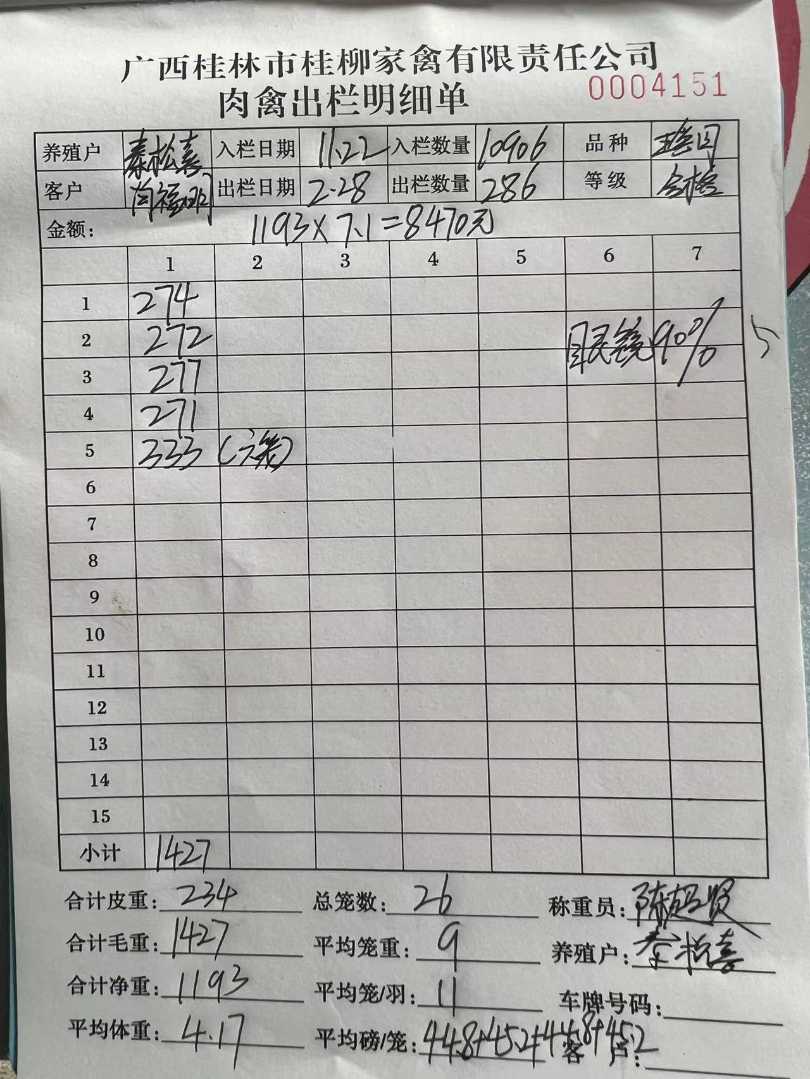 广西桂林市桂柳家禽有限责任公司
肉禽出栏明细单 0004151
养殖户 秦松喜 入栏日期 11.22 入栏数量 10906 品种
客户 出栏日期 2-28 出栏数量 286 等级 合格
金额: 1193×7.1=8470元
1 2 3 4 5 6 7
1 274
2 272 90%
3 277
4 271
5 333 (六笼)
6
7
8
9
10
11
12
13
14
15
小计 1427
合计皮重: 234 总笼数: 26 称重员:
合计毛重: 1427 平均笼重: 9 养殖户: 秦松喜
合计净重: 1193 平均笼/羽: 11 车牌号码:
平均体重: 4.17 平均磅/笼: 44.8+45.2+44.8+45.2 客户: